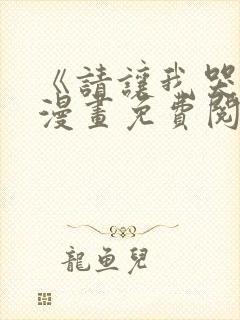 《請讓我哭
漫畫免費閱
龍魚兒